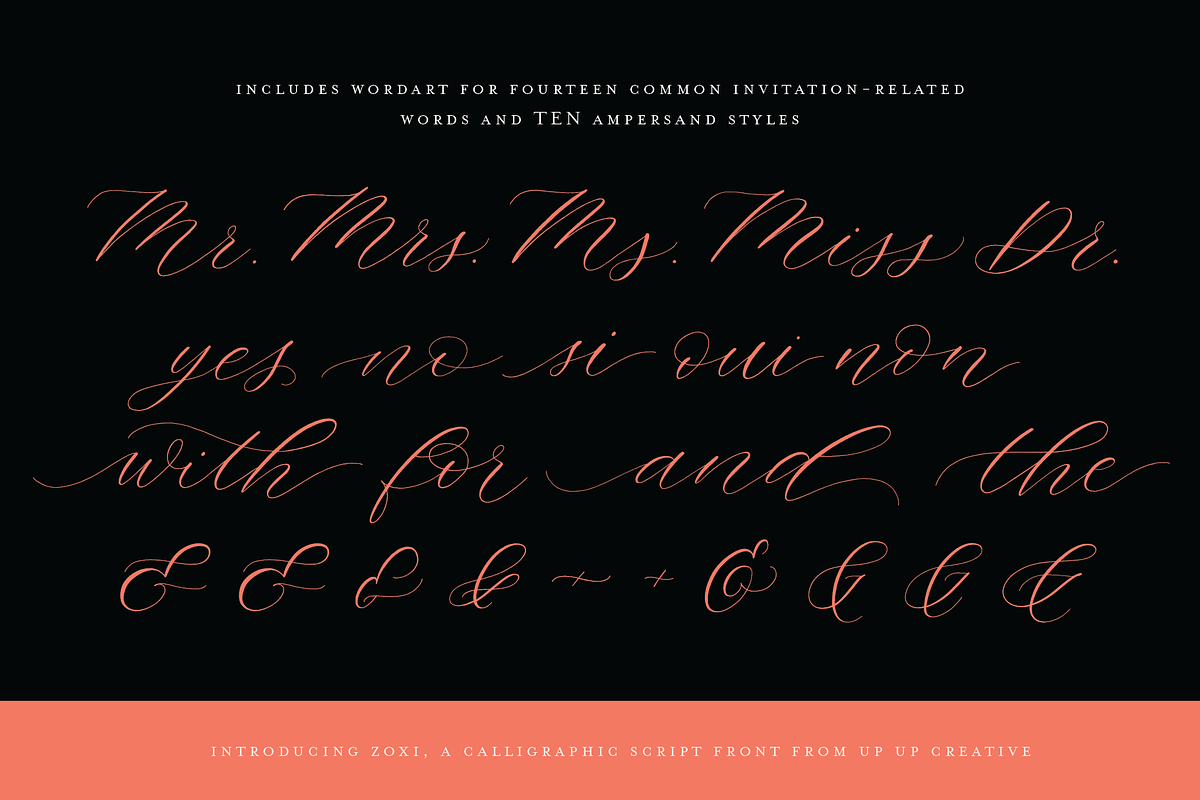 INCLUDES WORDART FOR FOURTEEN COMMON INVITATION-RELATED
WORDS AND TEN AMPERSAND STYLES
Mr. Mrs. Ms. Miss Dr.
yes no si oui non
with for and the
& & & & + + & & & &
INTRODUCING ZOXI, A CALLIGRAPHIC SCRIPT FRONT FROM UP UP CREATIVE